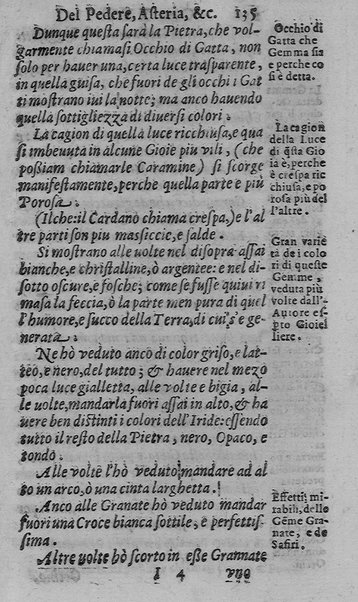 Del Pedere, Asteria, &c. 135
Dunque questa sarà la Pietra, che vol-
garmente chiamasi Occhio di Gatta, non
solo per hauer una, certa luce trasparente,
in quella guisa, che fuori de gli occhi i Gat
ti mostrano iui la notte; ma anco hauendo
quella sottigliezza di diuersi colori.
Occhio di
Gatta che
Gemma sia
e perche co
si è detta.
La cagion di quella luce ricchiusa, e qua
si imbeuuta in alcune Gioie piu vili, (che
possiam chiamarle Caramine) si scorge
manifestamente, perche quella parte è più
Porosa.
La cagion
della Luce
di q̃sta Gio
ia è, perche
è crespa ric
chiusa, e po
rosa più del
l'altre.
(Ilche: il Cardano chiama crespa,) e l'al
tre parti son piu massiccie, e salde.
Si mostrano alle uolte nel disopra assai
bianche, e christalline, ò argentee: e nel di-
sotto oscure, e fosche; come se fusse quiui ri
masa la feccia, ò la parte men pura di quel
l'humore, e succo della Terra, di cui s'e ge-
nerata.
Gran varie
tà de i colo
ri di queste
Gemme,
veduta più
volte dall'-
Autore es-
pto Gioiel
liere.
Ne hò veduto anco di color griso, e lat-
teo, e nero, del tutto; & hauere nel mezo
poca luce gialletta, alle volte e bigia, al-
le uolte, mandarla fuori assai in alto, & ha
uere ben distinti i colori dell'Iride: essendo
tutto il resto della Pietra, nero, Opaco, e
tondo.
Alle volte l'hò veduto mandare ad al
to un arco, ò una cinta larghetta.
Anco alle Granate hò veduto mandar
fuori una Croce bianca sottile, e perfettis-
sima.
Effetti mi-
rabili, dello
Gẽme Gra-
nate, e de
Safiri.
Altre volte hò scorto in esse Grannate
I 4 vno